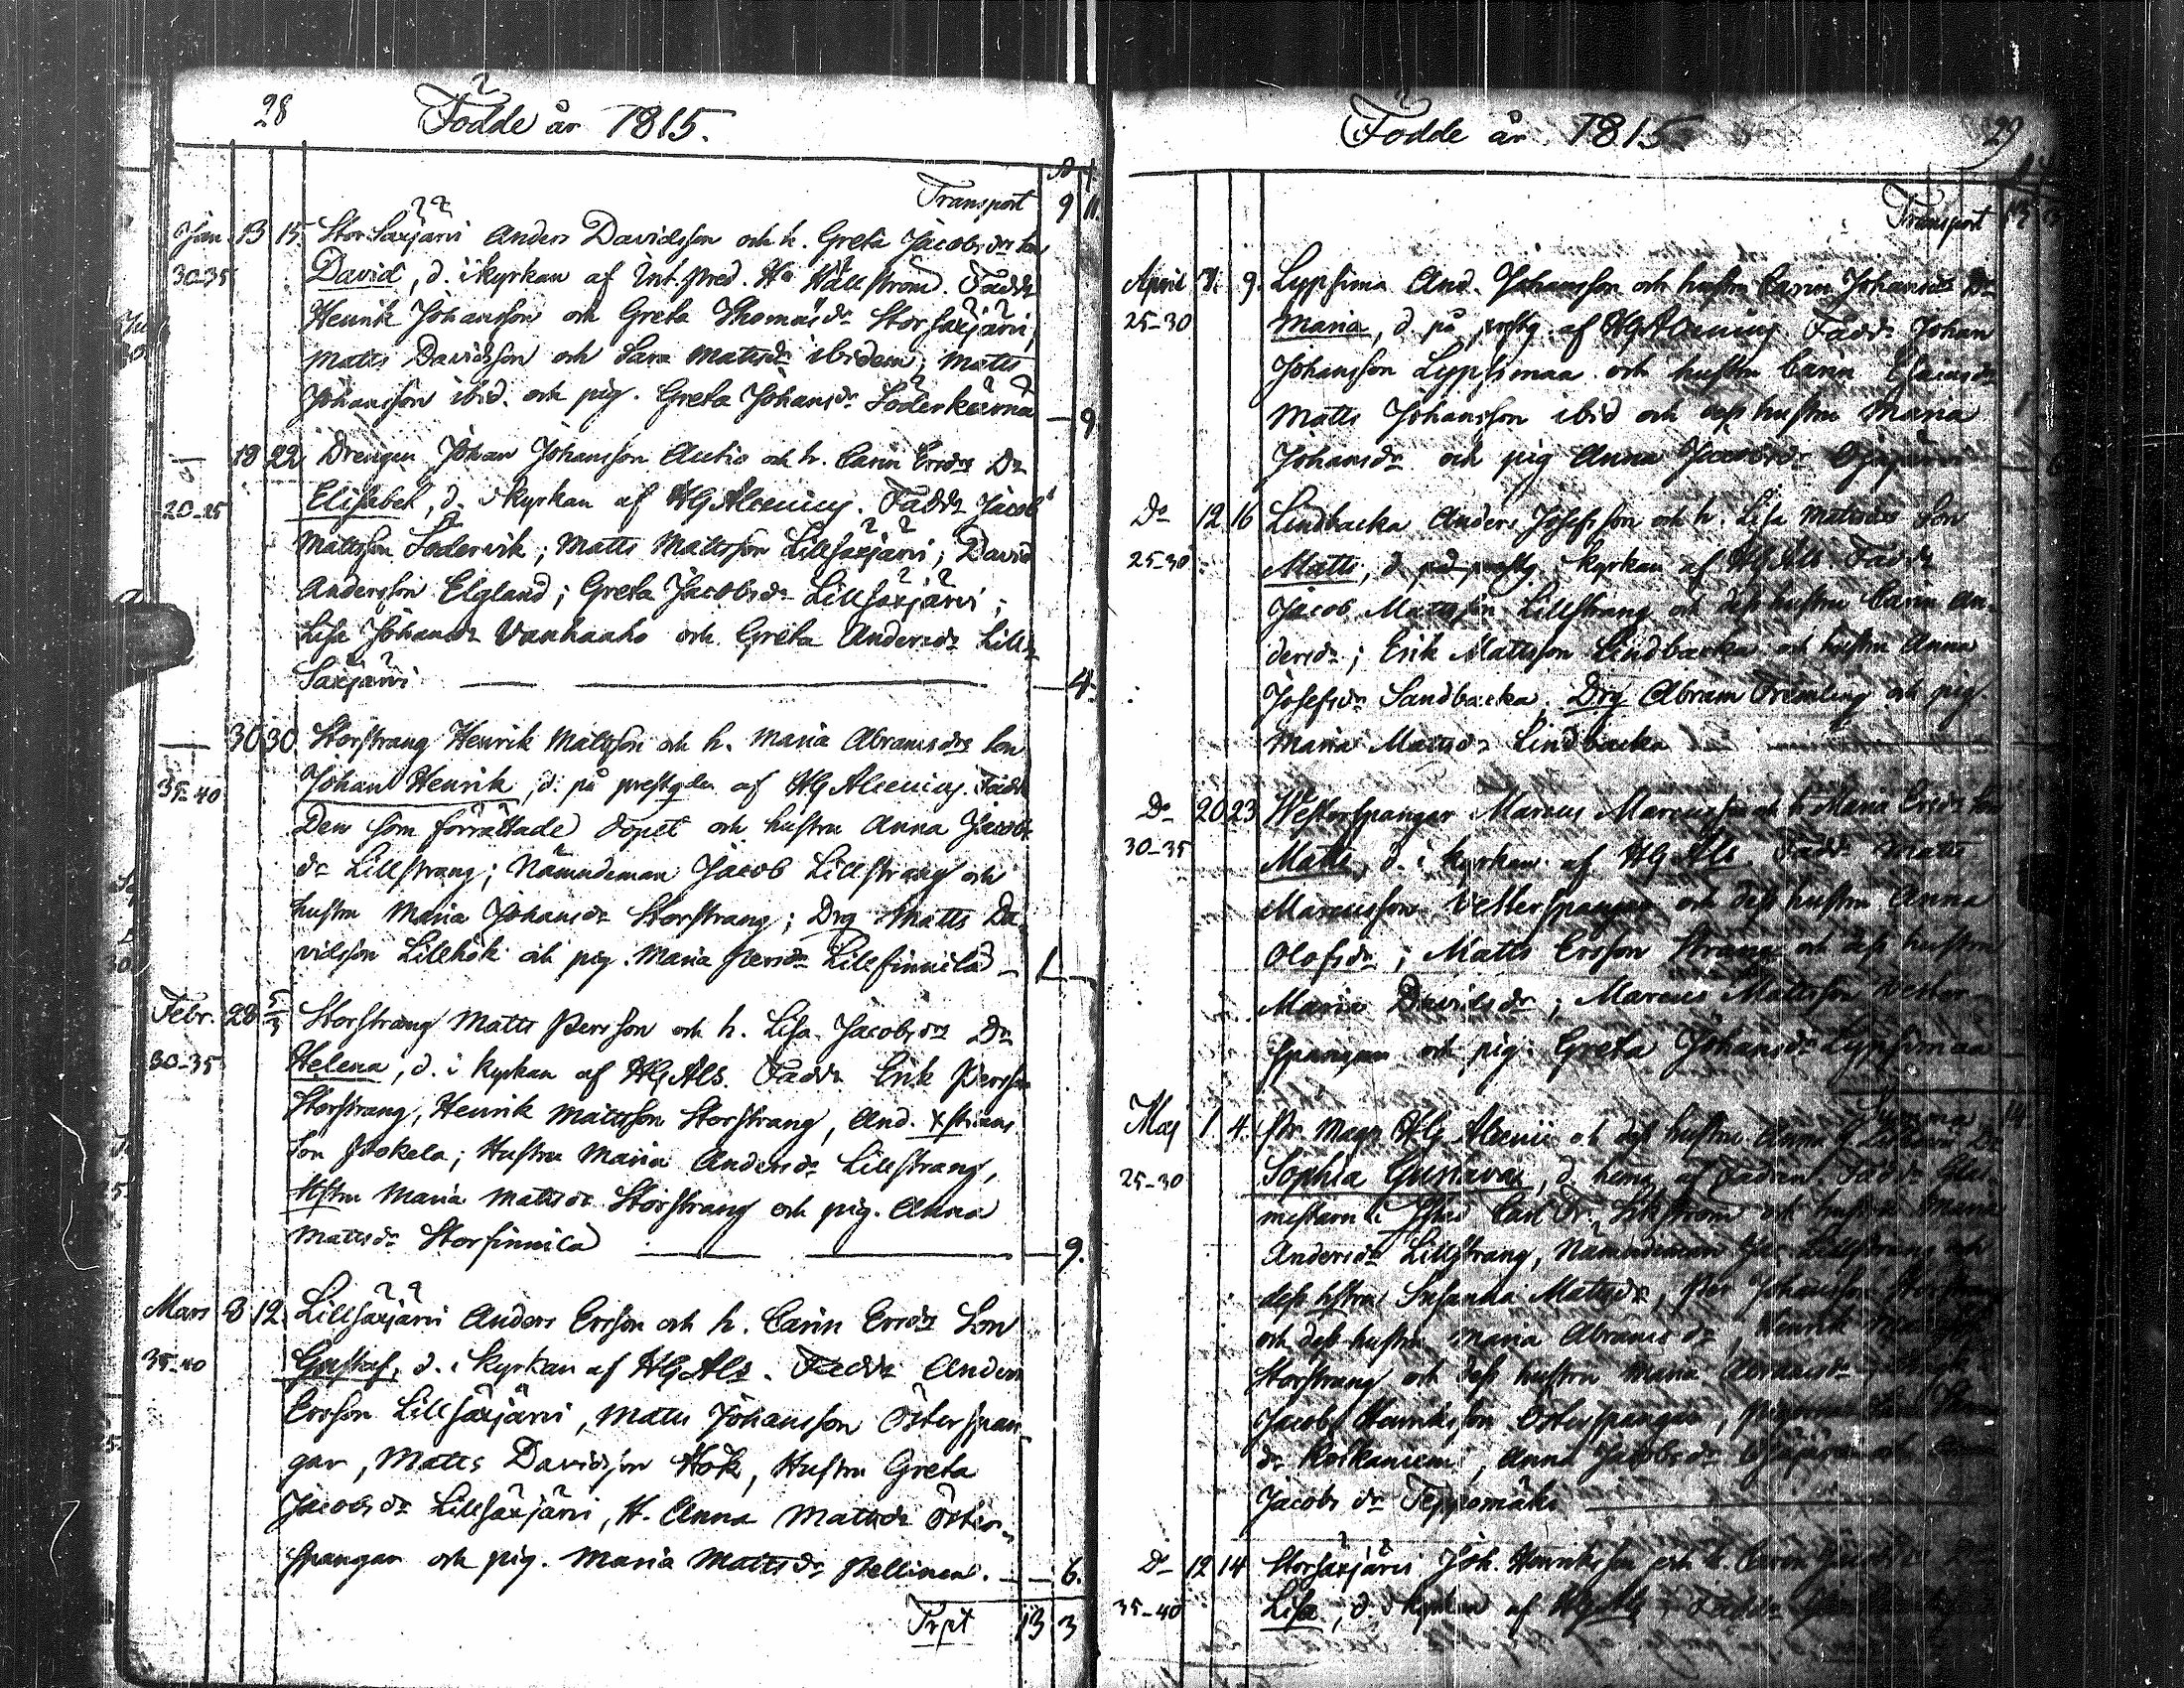 28
Födde år 1815.
Transport 9 11
Jan. 13 15. StorSaxjärvi Anders Davidsson och h. Greta Jacobsdrs Son
30-35 David, d. i kyrkan af Hällström. Faddr
Henrik Johansson och Greta Thomasdr Storsaxjärvi,
Matts Davidsson och Sara Mattsdr ibidem, Matts
Johansson ibid. och pig. Greta Johansdr Söderkärna 9
— 18 22 Drengen Johan Johansson Autio och h. Carin Ersdrs Dr
20-25 Elisabet, d. i kyrkan af HGAlcenius. Faddr Jacob
Mattsson Södervik; Matts Mattsson Lillsaxjärvi; David
Andersson Elgland; Greta Jacobsdr Lillsaxjärvi;
Lisa Johansdr Vanhaaho och Greta Andersdr Lill-
Saxjärvi 4.
— 30 30. Storstrang Henrik Mattsson och h. Maria Abramsdrs Son
35-40 Johan Henrik, d. på prestgden af HGAlcenius. Faddr
Den som förrättade dopet och hustru Anna Jacobs
dr Lillstrang; Nämndeman Jacob Lillstrang och
hustru Maria Johansdr Storstrang; Drg Matts Da-
vidsson Lillhök och pig. Maria Persdr Lillfinnilä 1
Febr. 28 5/3 Storstrang Matts Persson och h. Lisa Jacobsdrs Dr
30-35 Helena, d. i kyrkan af HGAls. Faddr Erik Persson
Storstrang, Henrik Mattsson Storstrang, And. Xstians
son Pokela; Hustru Maria Andersdr Lillstrang,
Hstru Maria Mattsdr Storstrang och pig. Anna
Mattsdr Storfinnilä 9.
Mars 3 12. Lillsaxjärvi Anders Ersson och h. Carin Ersdrs Son
35-40 Gustaf, d. i kyrkan af HGAls. Faddr Anders
Ersson Lillsaxjärvi, Matts Johansson Österspan-
gar, Matts Davidsson Hök, Hustru Greta
Jacobsdr Lillsaxjärvi, H. Anna Mattsdr Öster-
spangar och pig. Maria Mattsdr Pellinen. 6.
Trpt 13 3
Födde år 1815 29
Transport 13 3
April 9. Lyppsima And. Johansson och hustru Carin Johansdrs Dr
25-30 Maria, d. på prstg. af HGAlcenius Faddr Johan
Johansson Lyppsimaa och hustru Carin Esaiasdr
Matts Johansson ibid och dess hustru Maria
Johansdr och pig Anna Jacobsdr 6
Do 12 16 Lindbacka Anders Josefsson och h. Lisa Mattsdrs Son
25-30 Matts, d. på prestg. kyrkan af HGAls. Faddr
Jacob Mattsson Lillstrang och dess hustru Carin An-
dersdr; Erik Mattsson Lindbacka och hustru Anna
Josefsdr Sandbacka. Drg Abram Främling och pig.
Maria Mattsdr Lindbacka
Do 20 23 Westerspangar Marcus Marcusson och h. Maria Ersdrs Son
30-35 Matts, d. i kyrkan af HGAls. Faddr Matts
Marcusson Vesterspangar och dess hustru Anna
Olofsdr; Matts Ersson Strang och dess hustru
Maria Davidsdr; Marcus Mattsson Vester-
spangar och pig. Greta Johansdr Lyppsimaa
Summa 14
Maj 1 4. Magr HG Alcenii och dess hustru Anna Dr
25-30 Sophia Gustava, d. hema af Fadren. Faddr Glas-
mestarn Carl Fr. Sikström och hustru Maria
Andersdr Lillstrang, Nämndeman Jac. Lillstrang och
dess hstru Susanna Mattsdr, Per Johansson Storstrang
och dess hustru Maria Abramsdr, Henrik
Storstrang och dess hustru Maria Abramsdr
Jacob Henriksson Österspangar,
dr Koskaniemi, Anna Jacobsdr och
Jacobsdr Teppomäki
Do 12 14 Storsaxjärvi Joh. Henriksson och h. Carin
35-40 Lisa, d. i kyrkan af HGAls. Faddr